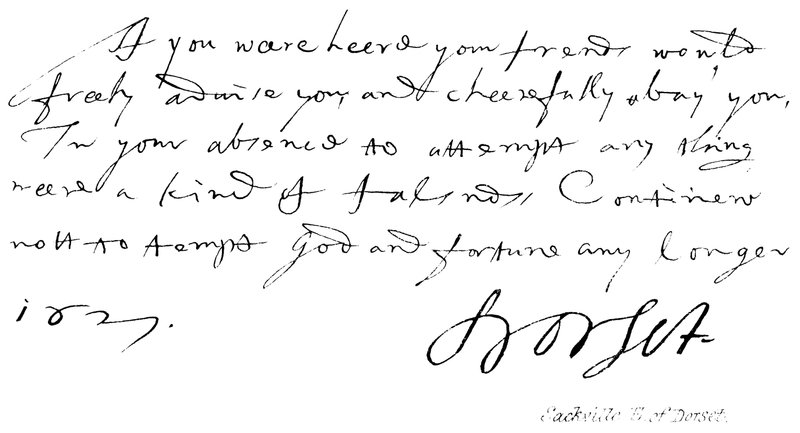 If you weare heere your frends would
freely advise you, and cheerefully obay you,
In your absence to attempt any thing
weere a kind of falsnes, Continew
nott to tempt God and fortune any longer
Dorset
Sackville E. of Dorset.